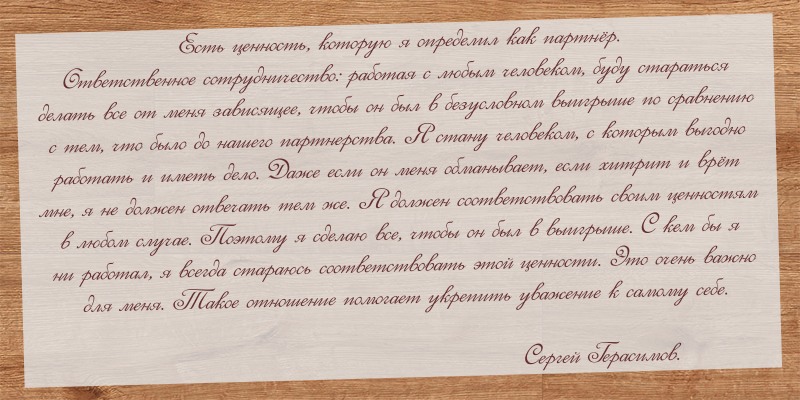 Есть ценность, которую я определил как партнёр.
Ответственное сотрудничество: работая с любым человеком, буду стараться
делать все от меня зависящее, чтобы он был в безусловном выигрыше по сравнению
с тем, что было до нашего партнерства. Я стану человеком, с которым выгодно
работать и иметь дело. Даже если он меня обманывает, если хитрит и врёт
мне, я не должен отвечать тем же. Я должен соответствовать своим ценностям
в любом случае. Поэтому я сделаю все, чтобы он был в выигрыше. С кем бы я
ни работал, я всегда стараюсь соответствовать этой ценности. Это очень важно
для меня. Такое отношение помогает укрепить уважение к самому себе.
Сергей Герасимов.